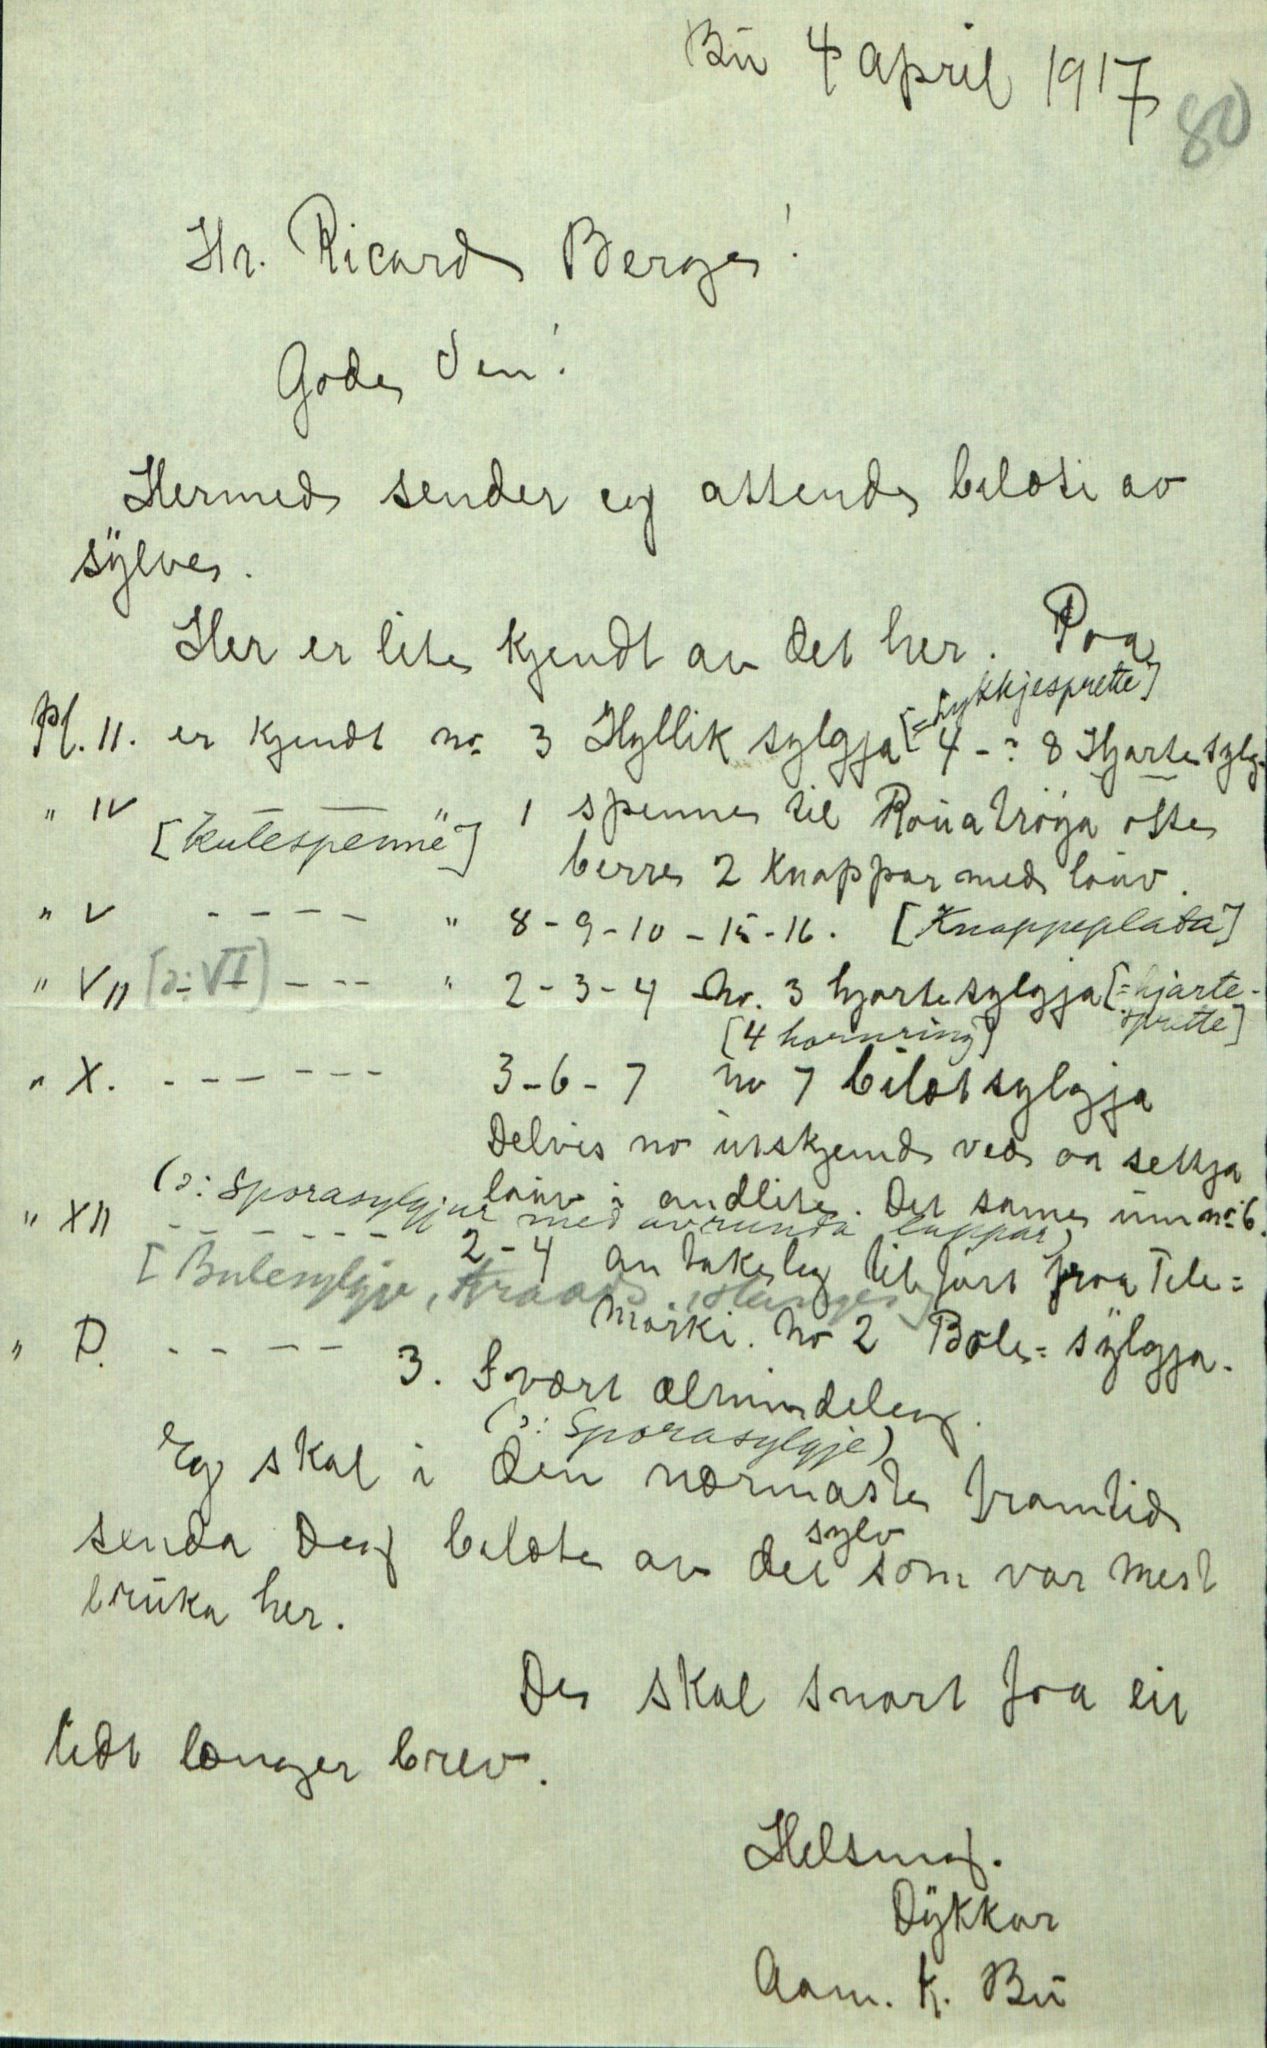 Bu 4 april 1917
80
Hr. Ricard Berge!
Gode Ven!
Hermed sender eg attende bilæti av
sylve.
Her er lite kjendt av det her. Paa
Pl. II. er kjendt no 3 Hyllik sylgja [= lykkjesprette] 4 - : 8 Hjarte sylg-
" IV [Kulespenne] " 1 spenne til Rauatrøya ofte
berre 2 knappar med lauv.
" V - - - - " 8-9-10-15-16. [Knappeplata]
" VII [ɔ: VI] - - - " 2-3-4 no. 3 hjortesylgja [= hjarte-
sprette]
[4 hornring]
" X. - - - - - - 3-6-7 no 7 bilætsylgja
Delvis no utskjemd ved aa settja
lauv i andlite. Det same um no 6.
(ɔ: Sporasylgjur med avrunda lappar)
" XII - - - - - - 2-4 an takeleg tilført fraa Tele=
[Bulesylgje,
marki. No 2 Bole=sylgja.
" D. - - - - 3. Svært almindeleg.
(ɔ: Sporasylgje)
Eg skal i den nærmaste framtid
senda Deg bilæte av det sylv som var mest
bruka her.
De skal snart faa eit
lidt længer brev.
Helsing.
Dykkar
Aam. K. Bu